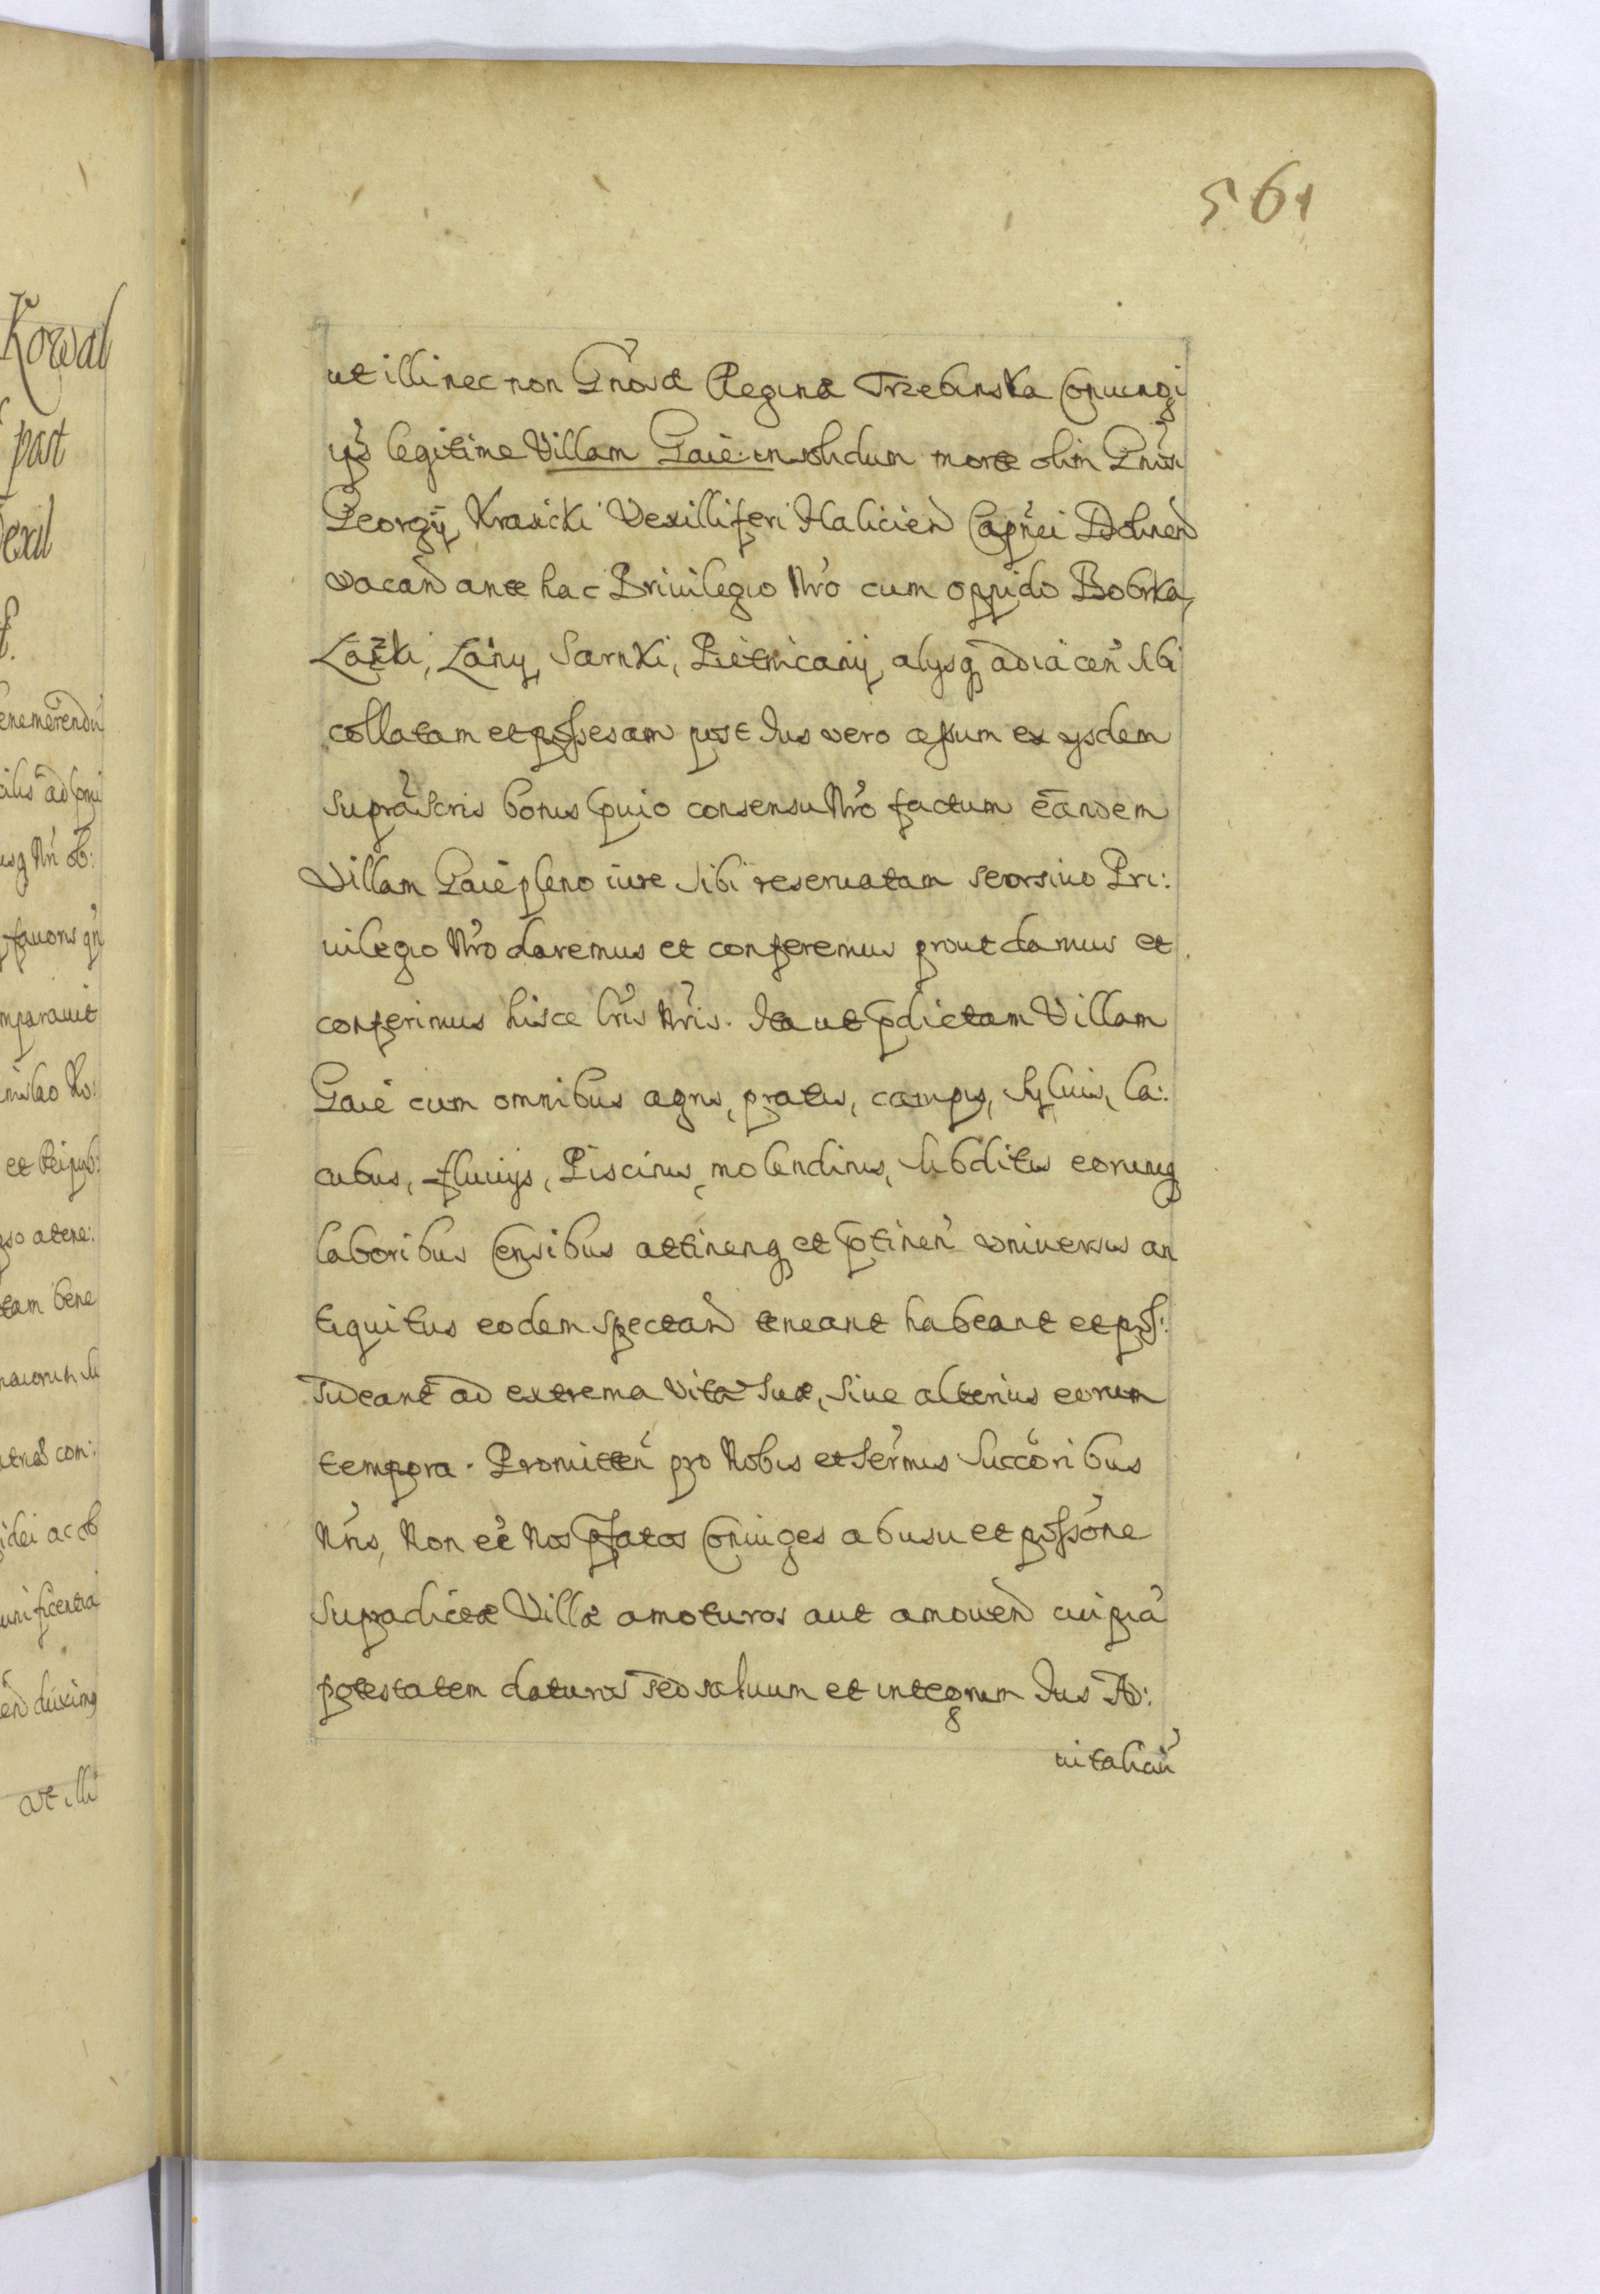 561
ut illi nec non Gnosæ Reginæ Trzebinska Coniungi
ejs legitime Villam Gaie in solidum morte olim Gnosi
Georgÿ Krasicki Vexilliferi Haliciens Capnei Dolinens
vacan ante hac Priuilegio Nro cum oppido Bobrka,
Łaźki, Łany, Sarnki, Pietniczany, alysq adiacen sibi
collatam et possesam post Ius vero cessum ex ysdem
supra scris bonis puio consensu Nro factum eandem
Villam Gaie pleno iure sibi reseruatam seorsiuo Pri:
uilegio Nro daremus et conferemus prout damus et
conferimus hisce Lris Nris. Ita ut pdictam Villam
Gaie cum omnibus agris, pratis, campis, syluis, la:
cubus, fluuys, Piscinis, molendinis, subditis eorumq
laboribus Censibus attinenq et ptinen vniuersis an
tiquitus eodem spectan teneant habeant et poss:
sideant ad extrema Vitæ suæ, siue alterius eorum
tempora. Promitten pro Nobis et Sermis Succoribus
Nris, Non ee Nos pfatos Coniuges ab usu et possone
supradictæ Villæ amoturos aut amouen cuipia
potestatem daturos sed saluum et integrum Ius Ad:
uitalian
Kowal
past
exil
enemerendu
cilis ad pni
usq Nri ob:
fauoris qn
mparauit
nislao Ko:
et Reipub:
pso atene:
tam bene
atriæ con:
idei ac ob
unificentia
en duximq
ut illi